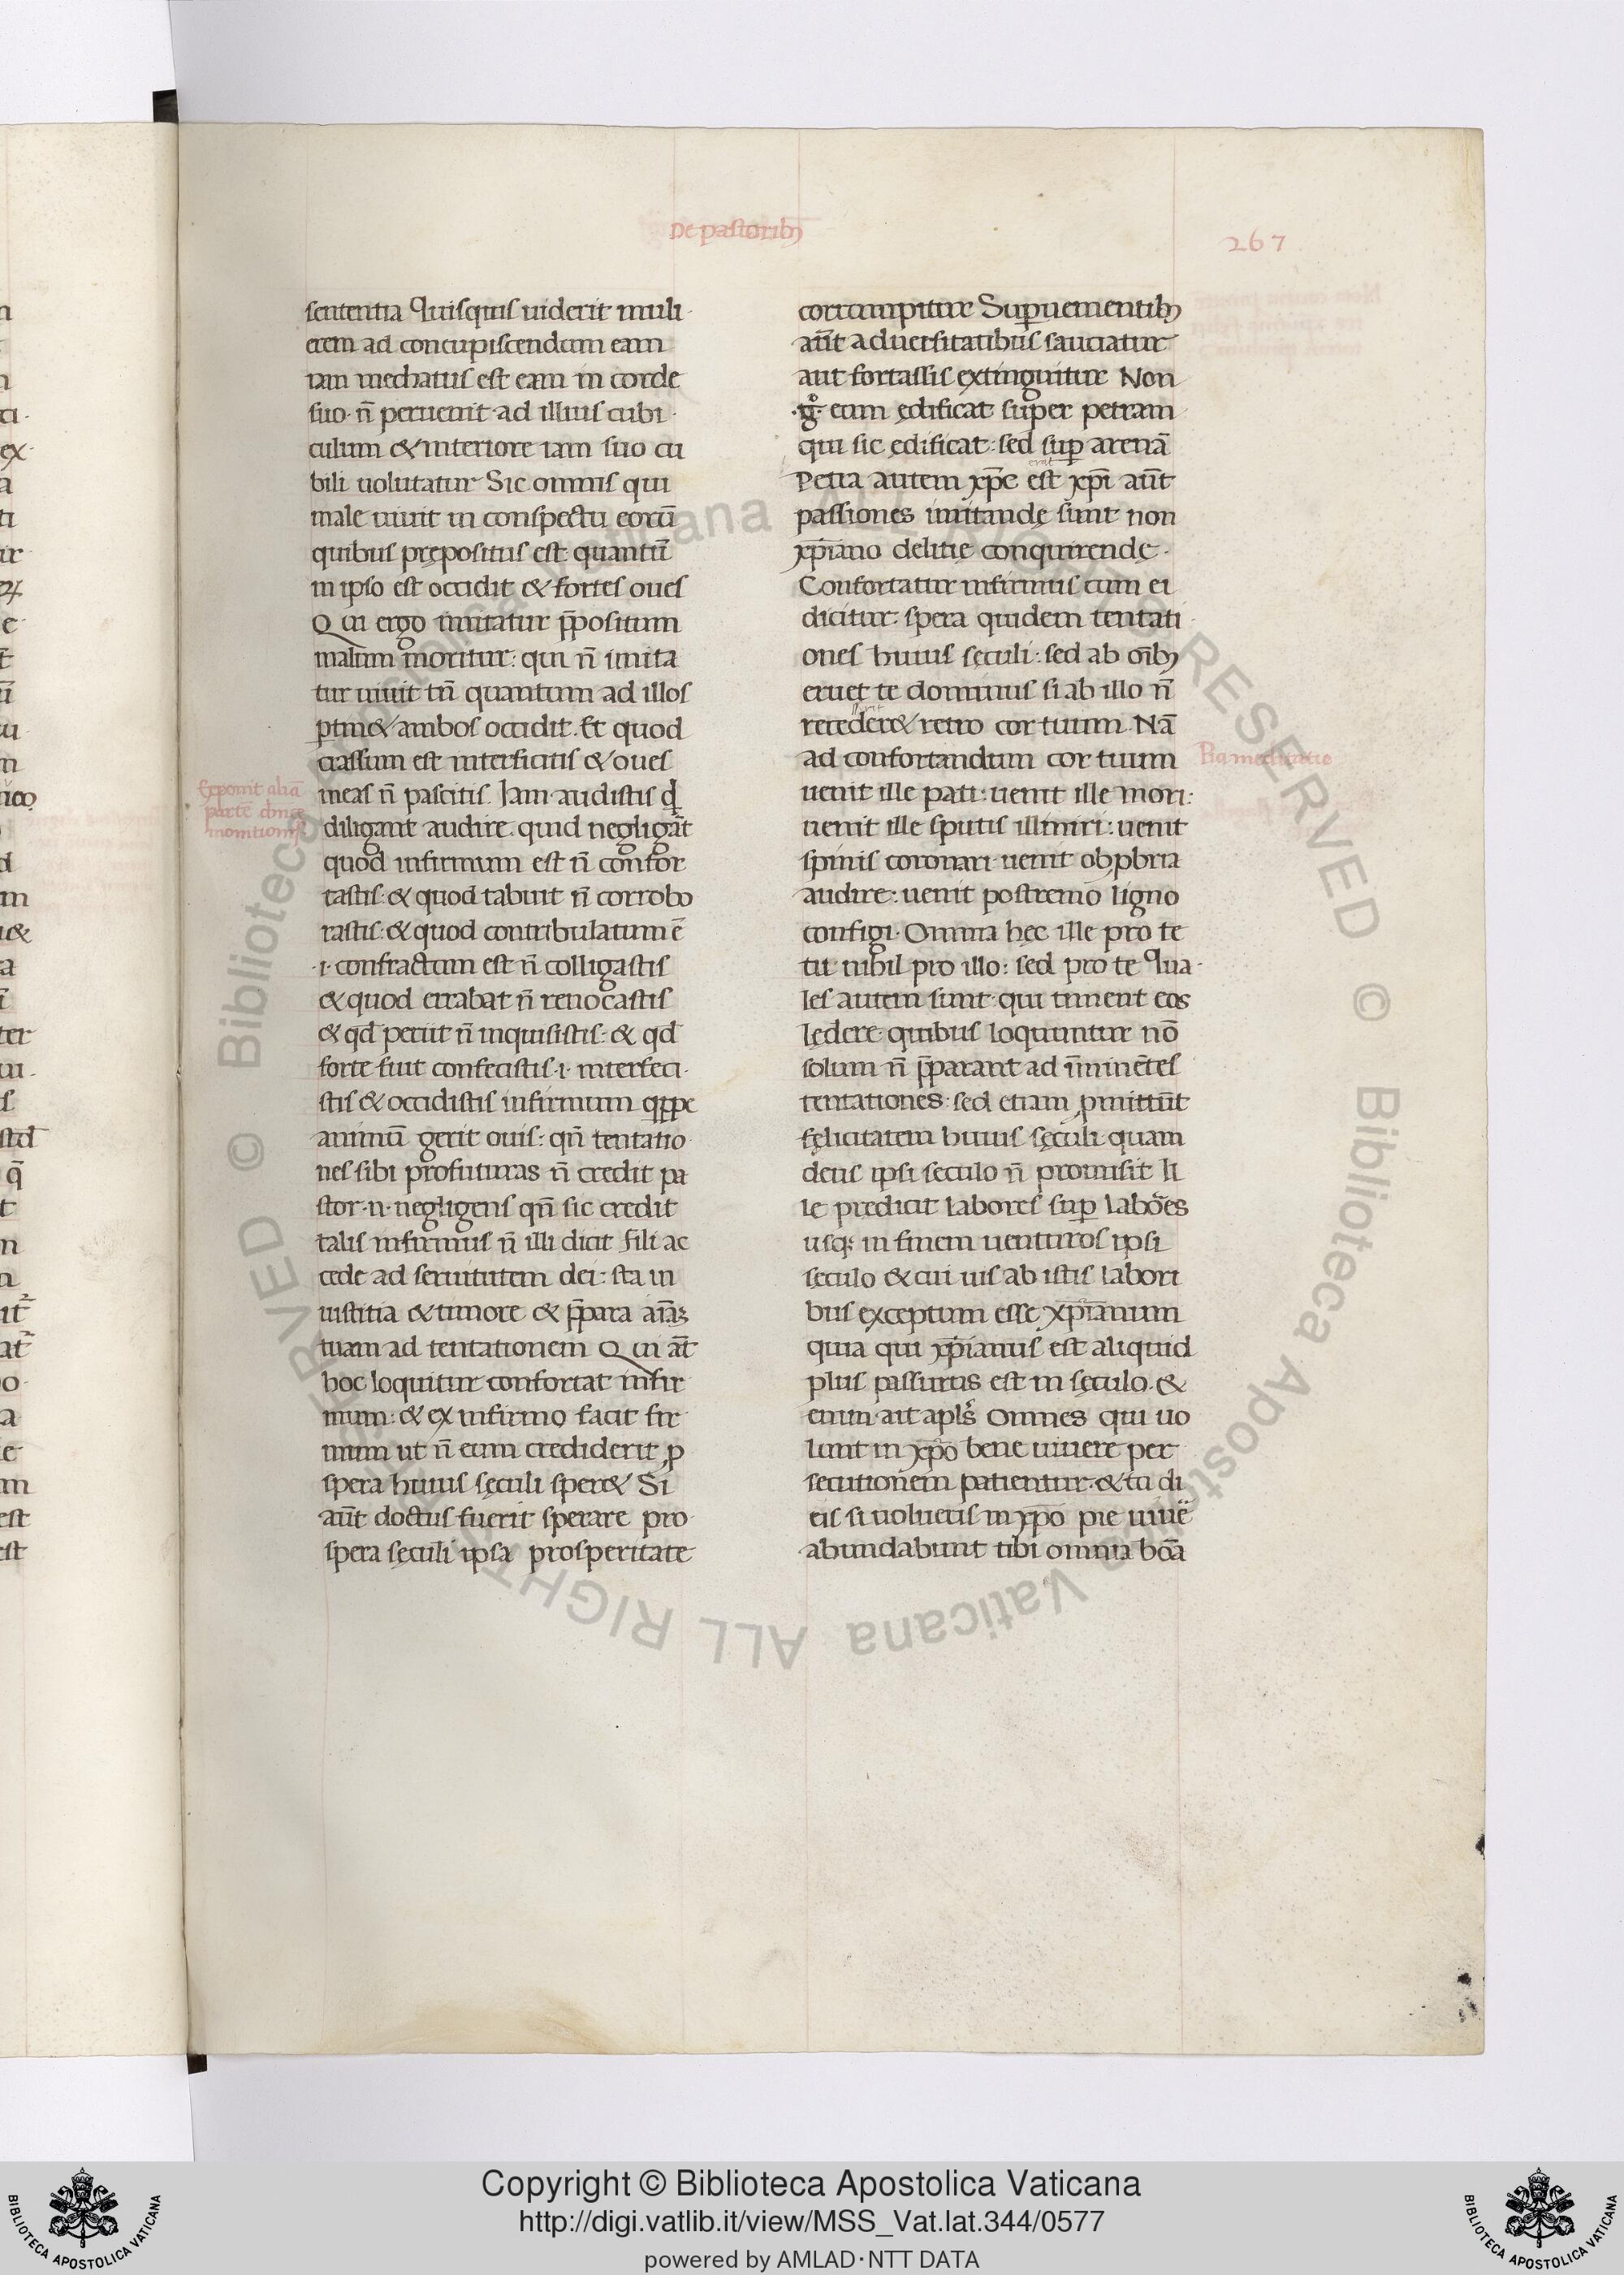 De pastoribꝫ
267
sententia Quisquis uiderit muli
erem ad concupiscendum eam
iam mechatus est eam in corde
suo. n̄ peruenit ad illius cubi
culum & interiore iam suo cu
bili uolutatur Sic omnis qui
male uiuit in conspectu eorū
quibus prępositus est quantū
in ipso est occidit & fortes oues
Qui ergo imitatur p̄positum
malum moritur: qui n̄ imita
tur uiuit tn̄ quantum ad illos
ptin& ambos occidit. Et quod
crassum est interficitis & oues
meas n̄ pascitis. Iam audistis qđ
diligant audire. quid negligāt
quod infirmum est n̄ confor
tastis: & quod tabuit n̄ corrobo
rastis: & quod contribulatum ē
.i. confractum est n̄ colligastis
& quod errabat n̄ reuocastis
& qd̄ periit n̄ inquisistis: & qd̄
forte fuit confecistis .i. interfeci
stis & occidistis infirmum qꝓpe
animū gerit ouis: qn̄ tentatio
nes sibi profuturas n̄ credit pa
stor .n. negligens qn̄ sic credit
talis infirmus n̄ illi dicit fili ac
cede ad seruitutem dei: sta in
iustitia & timore & p̄para aīaꝫ
tuam ad tentationem Qui aūt
hoc loquitur confortat infir
mum: & ex infirmo facit fir
mum ut n̄ eum crediderit ꝓ
spera huius sęculi sper& Si
aūt doctus fuerit sperare pro
spera sęculi ipsa prosperitate
Exponit aliā
partē dn̄icę
monitionis
corrumpitur Superuenientibꝫ
aūt aduersitatibus sauciatur
aut fortassis extinguitur Non
.gͦ. eum ędificat super petram
qui sic ędificat: sed sup̱ arenā
Petra autem xp̄c est xp̄i aūt
erat
passiones imitandę sunt non
xp̄iano delitię conquirendę.
Confortatur infirmus cum ei
dicitur: spera quidem tentati
ones huius sęculi: sed ab oībꝫ
eruet te dominus si ab illo n̄
recedere& retro cor tuum. Nā
ad confortandum cor tuum
uenit ille pati: uenit ille mori:
uenit ille sputis illiniri: uenit
spinis coronari uenit obꝓbria
audire: uenit postremo ligno
configi. Omnia hęc ille pro te
tu nihil pro illo: sed pro te Qua
les autem sunt qui timent eos
lędere quibus loquuntur nō
solum n̄ p̄parant ad īminētes
tentationes: sed etiam ꝓmittūt
fęlicitatem huius sęculi quam
deus ipsi seculo n̄ promisit Il
le predicit labores sup̱ labōes
usqꝫ in finem uenturos ipsi
sęculo & cui uis ab istis labori
bus exceptum esse xp̄ianum
quia qui xp̄ianus est aliquid
plus passurus est in sęculo. &
enim ait apl̄s Omnes qui uo
lunt in xp̄o bene uiuere per
secutionem patientur. & tu di
cis si uolueris in xp̄o pie uiuē
abundabunt tibi omnia bōa
Pia meditatio
Copyright © Biblioteca Apostolica Vaticana
http://digi.vatlib.it/view/MSS_Vat.lat.344/0577
powered by AMLAD·NTT DATA
BIBLIOTECA APOSTOLICA VATICANA
BIBLIOTECA APOSTOLICA VATICANA
© Biblioteca Apostolica Vaticana ALL RIGHTS RESERVED
© Biblioteca Apostolica Vaticana ALL RIGHTS RESERVED